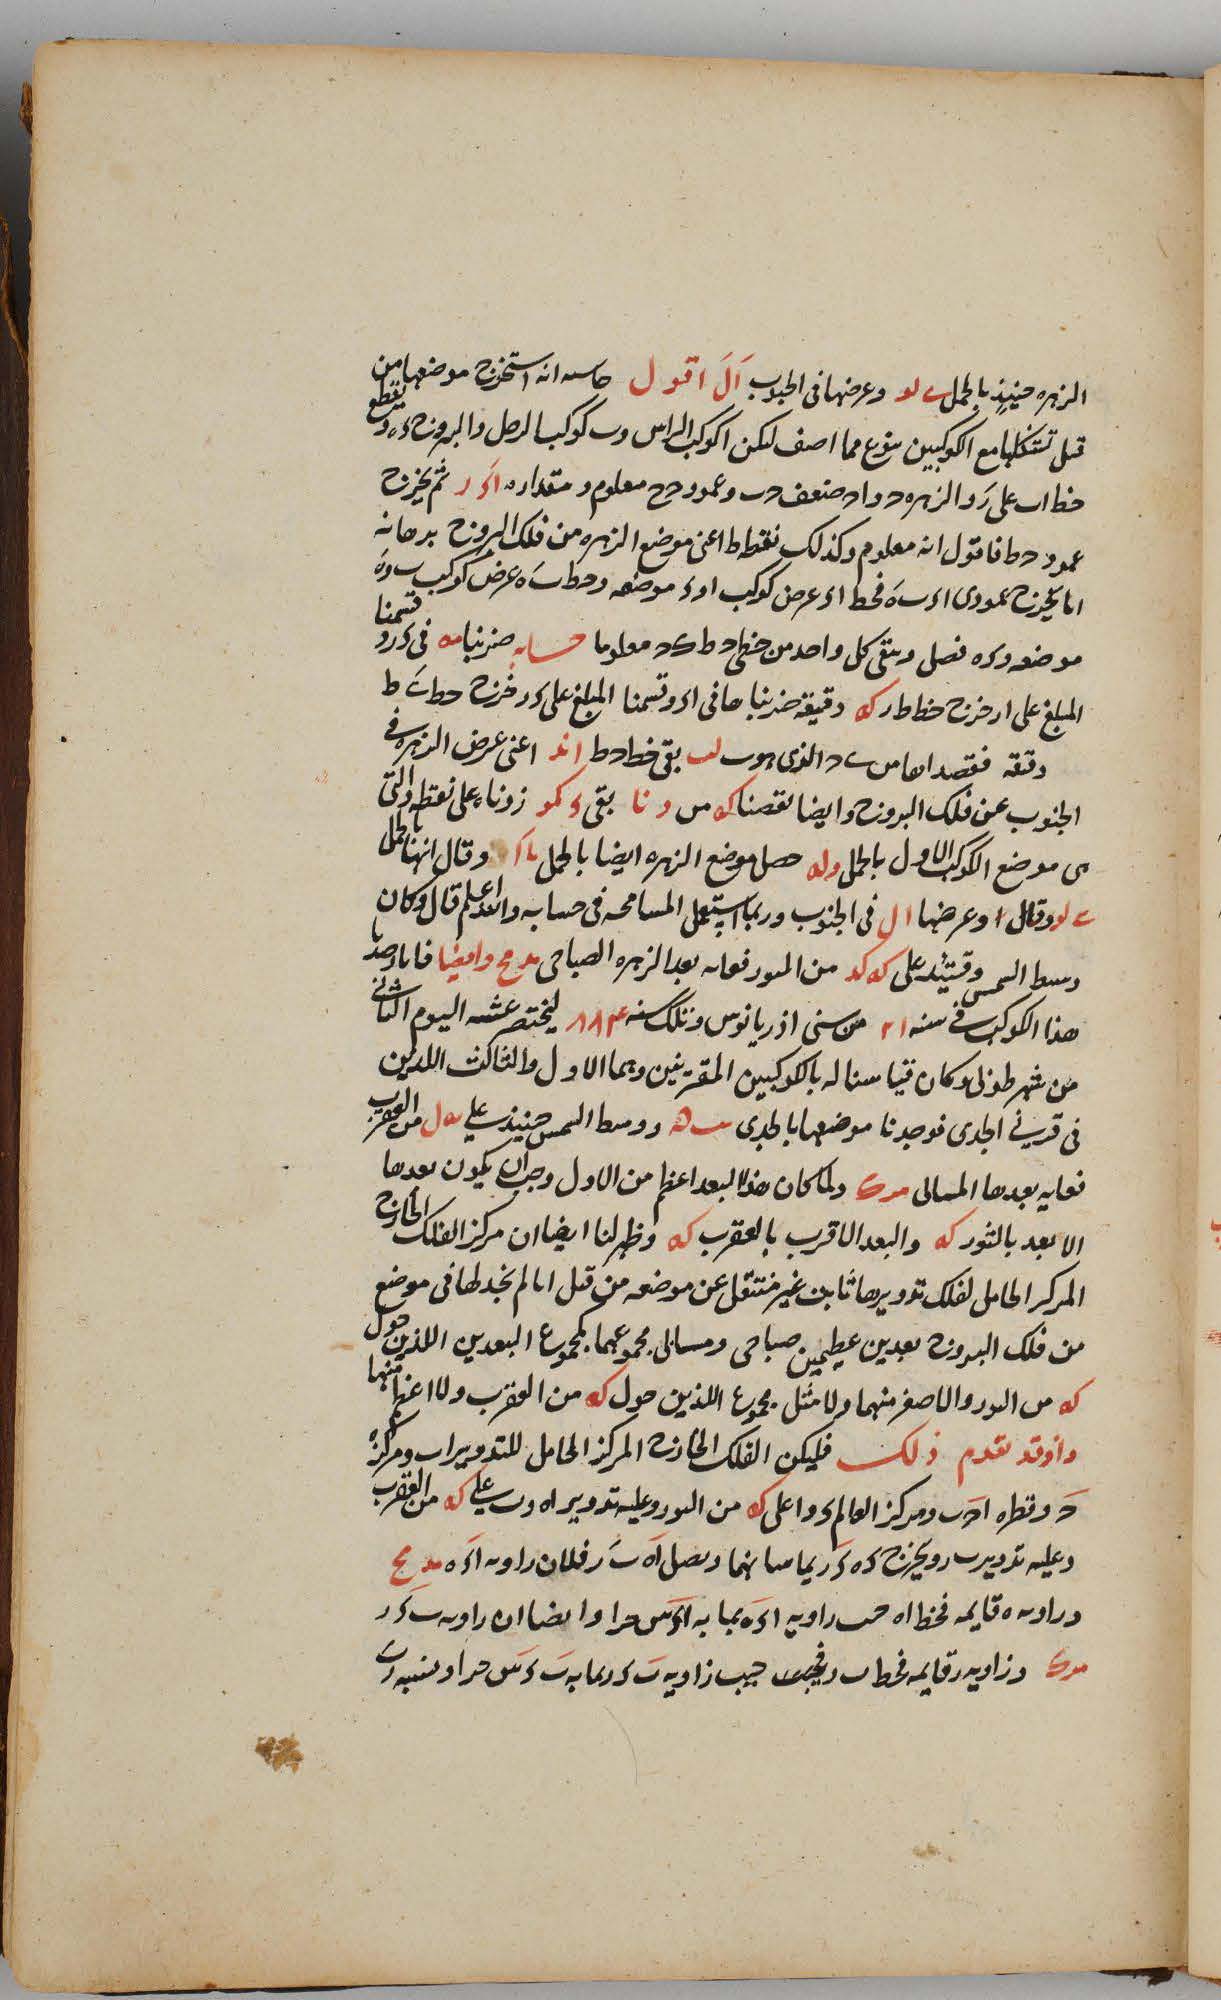 الزهره حينيذ بالحمل ى لو وعرضها فى الجنوب آل اقول حاسه انه استخرج موضعها من
قبل تشكلها مع الكوكبين بنوع مما اصف ليكن ا كوكب الراس وب كوكب الرجل والبروج ء ه ويقطع
خط اب على ر والزهره ح و اح ضعف ح ب وعمود ح ح معلوم ومقداره ثم يخرج
عمود ح ط فاقول انه معلوم وكذلك نقطه ط اعنى موضع الزهره من فلك البروج برهانه
انا يخرج عمودى اء ب ه فخط اء عرض كوكب ا و ء موضعه وخط ب ه عرض كوكب ب و ه
موضعه و ء ه فصل ويبقى كل واحد من خطى ح ط معلوما حسابه ضربنا فى ء ر وقسمنا
المبلغ على ار خرج خط ط ر كه دقيقه ضربناها فى اء وقسمنا المبلغ على ء ر خرج خط
دقيقه نقصناها من الذى هو ب لب بقى خط ح ط اعنى عرض الزهره فى
الجنوب عن فلك البروج وايضا نقصنا كه من و نا بقى ء كو زدناه على نقطه ء التى
هى موضع الكوكب الاول بالحمل و له حصل موضع الزهره ايضا بالحمل يا ا وقال انها بالحمل
ى لو وقال ا وعرضها ا ل فى الجنوب وربما استعمل المسامحه فى حسابه والله اعلم قال وكان
وسط الشمس وقتيذ على كه كد من الثور فغايه بعد الزهره الصباحى مد مح وايضا فانا رصدنا
هذا الكوكب فى سنه ٢١ من سنى اذريانوس وتلك سنه ٨٨٤ لبختنصر عشيه اليوم الثانى
من شهر طوبى وكان قياسنا له بالكوكبين المقترنين وهما الاول والثالث اللذين
فى قرنى الجدى فوجدنا موضعها بالجدى ووسط الشمس حينيذ على ل من العقرب
فغايه بعدها المسائى مرك ولما كان هذا البعد اعظم من الاول وجب ان يكون بعدها
الابعد بالثور كه والبعد الاقرب بالعقرب كه وظهر لنا ايضا ان مركز الفلك الخارج
المركز الحامل لفلك تدويرها ثابت غير منتقل عن موضعه من قبل انا لم نجد لها فى موضع
من فلك البروج بعدين عظيمين صباحى ومسائى مجموعهما كمجموع البعدين اللذين حول
كه من الثور والاصغر منهما ولا مثل مجموع اللذين حول كه من العقرب ولا اعظم منهما
واذ قد تقدم ذلك فليكن الفلك الخارج المركز الحامل للتدوير اب ومركزه
ح وقطره اح ب ومركز العالم ء و ا على كه من الثور وعليه تدوير اه و ب على كه من العقرب
وعليه تدوير ب ر ويخرج ء ه ء ر يماسانهما ويصل اه ب ر فلان زاويه اء ه مد مح
وزاويه ه قايمه فخط اه جيب زاويه اء ه بما به اء س جزا وايضا ان زاويه ب ء ر
مرك وزاويه ر قايمه فخط ب ر جيب زاويه ب ء ر بما به ب ء س جزا ونسبه